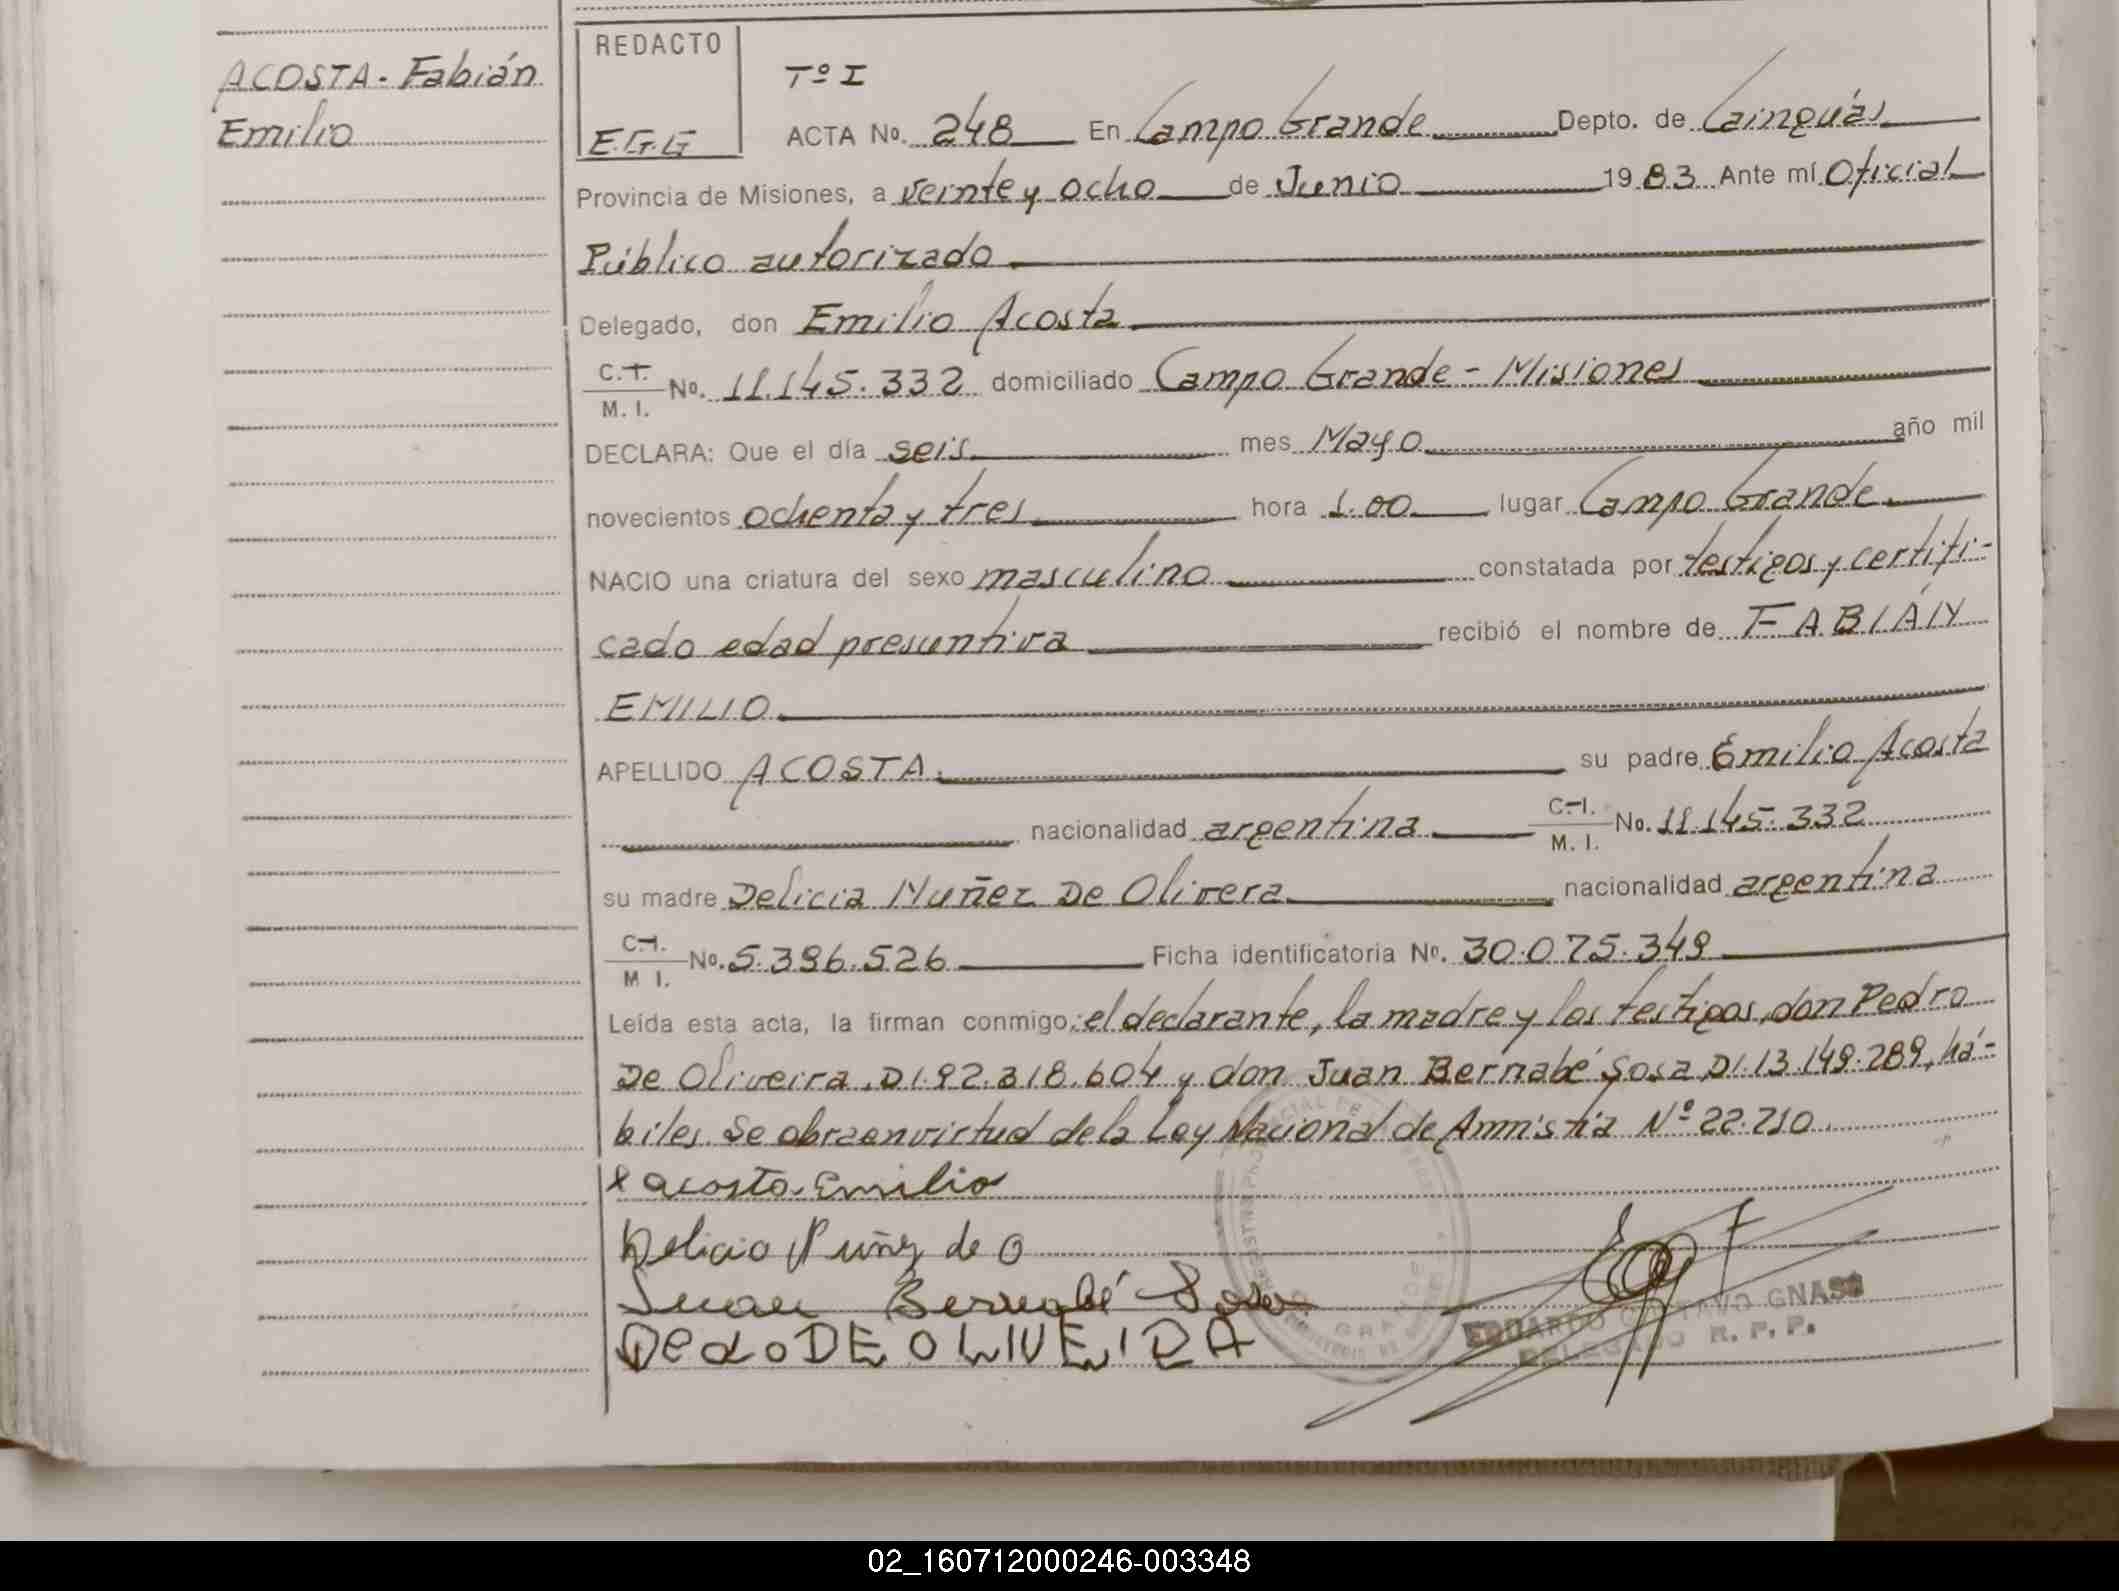 ACOSTA - Fabián
Emilio
REDACTO
E.G.G
Tº I
ACTA No. 248 En Campo Grande Depto. de Cainguás
Provincia de Misiones, a veinte y ocho de Junio 1983 Ante mí Oficial
Público autorizado
Delegado, don Emilio Acosta
C.I.
M. I. No. 11.145.332 domiciliado Campo Grande - Misiones
DECLARA: Que el día seis mes Mayo año mil
novecientos ochenta y tres hora 1.00 lugar Campo Grande
NACIO una criatura del sexo masculino constatada por testigos y certifi-
cado edad presuntiva recibió el nombre de FABIÁN
EMILIO
APELLIDO ACOSTA su padre Emilio Acosta
nacionalidad argentina C.I. M. I. No. 11.145.332
su madre Delicia Nuñez De Olivera nacionalidad argentina
C.I. M I. No. 5.396.526 Ficha identificatoria No. 30.075.349
Leída esta acta, la firman conmigo: el declarante, la madre y los testigos, don Pedro
De Oliveira, DI.92.318.604 y don Juan Bernabé Sosa, DI.13.149.289, há-
biles. Se obra en virtud de la Ley Nacional de Amnistía Nº 22.710
x acosta Emilio
Delicia Nuñez de O
Juan Bernabé Sosa
Pedo DE OLIVEIRA
EDUARDO GUSTAVO GNASS
DELEGADO R. P. P.
02_160712000246-003348